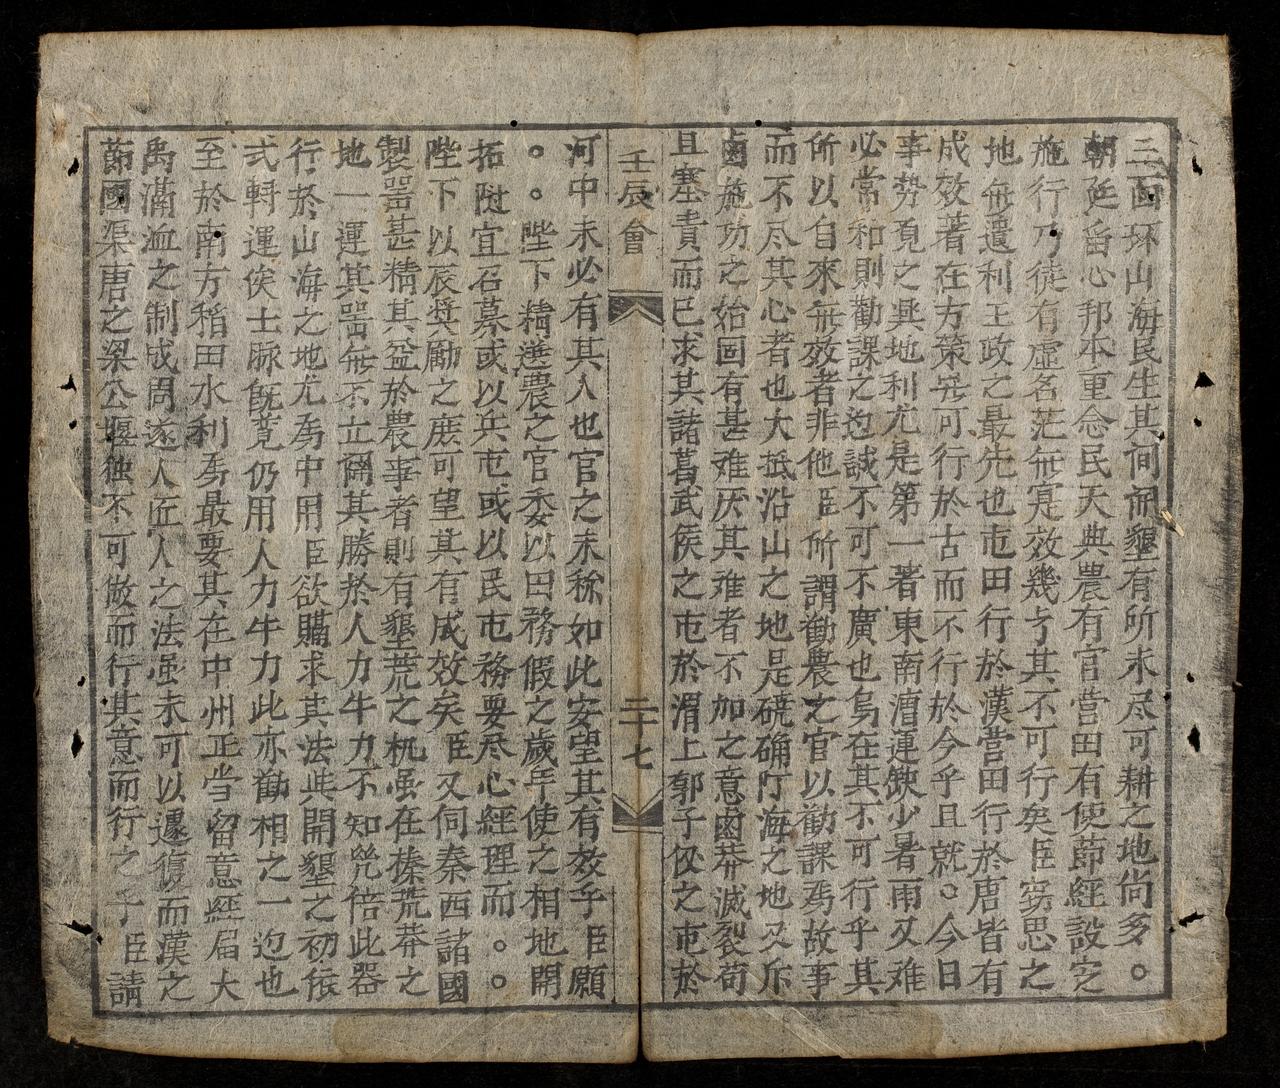 三面环山海民生其间而墾有所未尽可耕之地尚多○
朝廷畱心邦本重念民天典農有官营田有使節經設㝎
施行乃徒有虚名茫無寔效幾乎其不可行矣臣窃思之
地無遺利王政之最先也屯田行於漢营田行於唐皆有
成效著在方策安可行於古而不行於今乎且就○今日
事势覔之興地利尤是第一著東南漕運缺少暑雨又难
必當和則勸課之迯誠不可不廣也烏在其不可行乎其
所以自來無效者非他臣所謂勧農之官以勸課為故事
而不尽其心者也大抵沿山之地是硗确汀海之地又斥
鹵施功之始固有甚难厌其难者不加之意鹵莽滅裂苟
且塞責而已求其諸葛武侯之屯於渭上郭子仪之屯於
壬辰會
二十七
河中未必有其人也官之未称如此安望其有效乎臣願
○○陛下精選農之官委以田務假之歲年使之相地開
拓隨宜召募或以兵屯或以民屯務要尽心經理而○○
陛下以辰奨勵之庶可望其有成效矣臣又伺泰西諸國
製噐甚精其益於農事者則有墾荒之机虽在榛荒莽之
地一運其噐無不立闢其勝於人力牛力不知㡬倍此器
行於山海之地尤為中用臣欲購求其法些開墾之初依
式轉運俟士脉旣竟仍用人力牛力此亦勧相之一迯也
至於南方稲田水利為最要其在中州正当留意經届大
禹溝洫之制成周遂人匠人之法虽未可以遽復而漢之
節國渠唐之梁公堰独不可倣而行其意而行之乎臣請